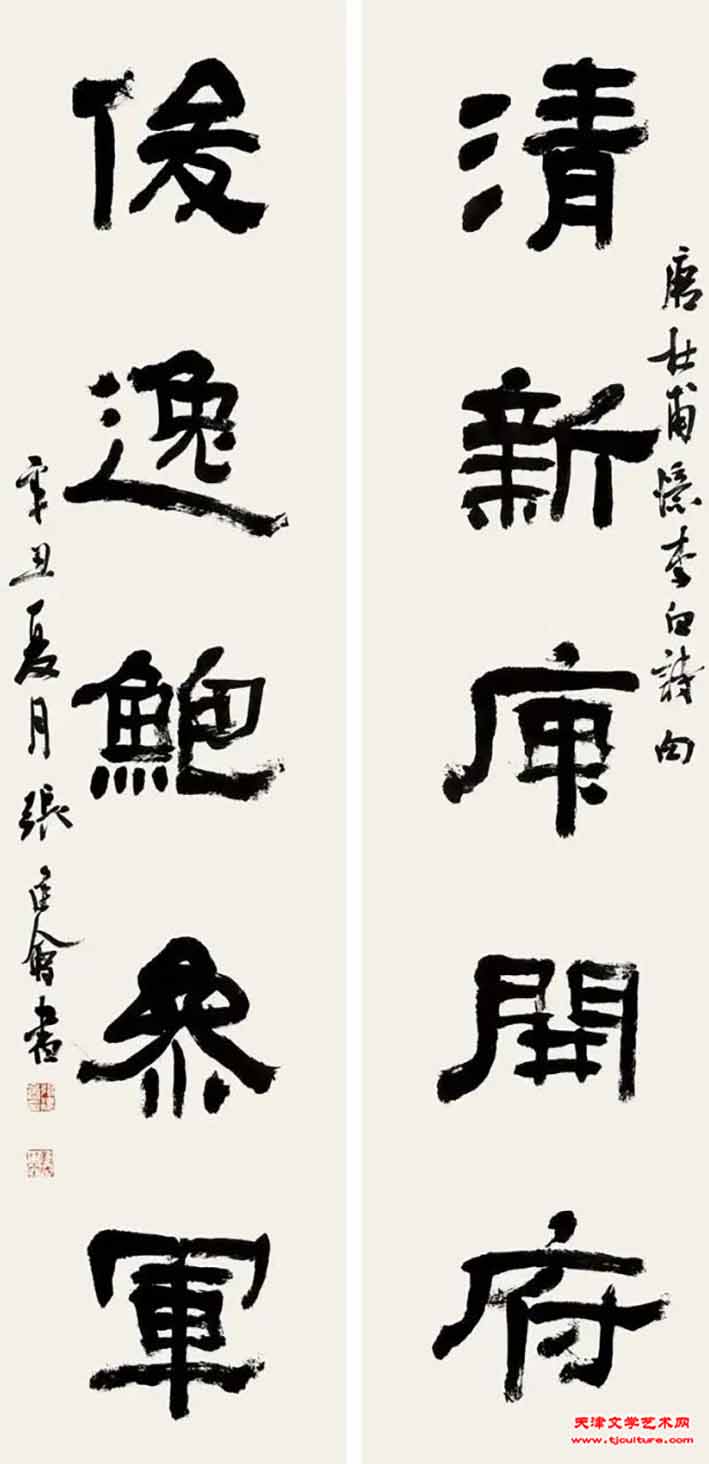 唐杜甫憶李白詩句
清新庾開府
俊逸鮑參軍
辛丑夏月張建會書
天津文学艺术网
www.tjculture.com